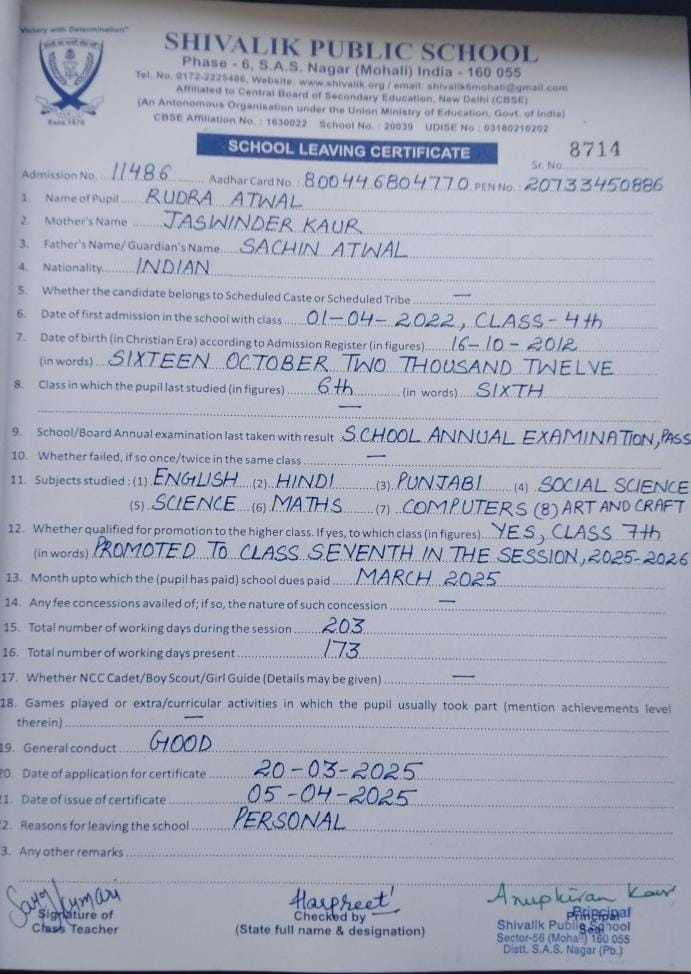 "Victory with Determination"
SHIVALIK PUBLIC SCHOOL
Phase - 6, S.A.S. Nagar (Mohali) India - 160 055
Tel. No. 0172-2225486, Website: www.shivalik.org / email: shivalik6mohali@gmail.com
Affiliated to Central Board of Secondary Education, New Delhi (CBSE)
(An Antonomous Organisation under the Union Ministry of Education, Govt. of India)
CBSE Affiliation No. : 1630022 School No. : 20039 UDISE No : 03180210202
Estd. 1970
SCHOOL LEAVING CERTIFICATE
Sr. No. 8714
Admission No. : 11486 Aadhar Card No. : 800446804770 PEN No. : 20733450886
1. Name of Pupil RUDRA ATWAL
2. Mother's Name JASWINDER KAUR
3. Father's Name/ Guardian's Name SACHIN ATWAL
4. Nationality INDIAN
5. Whether the candidate belongs to Scheduled Caste or Scheduled Tribe —
6. Date of first admission in the school with class 01-04-2022, CLASS-4th
7. Date of birth (in Christian Era) according to Admission Register (in figures) 16-10-2012
(in words) SIXTEEN OCTOBER TWO THOUSAND TWELVE
8. Class in which the pupil last studied (in figures) 6th (in words) SIXTH
—
9. School/Board Annual examination last taken with result SCHOOL ANNUAL EXAMINATION, PASS
10. Whether failed, if so once/twice in the same class —
11. Subjects studied : (1) ENGLISH (2) HINDI (3) PUNJABI (4) SOCIAL SCIENCE
(5) SCIENCE (6) MATHS (7) COMPUTERS (8) ART AND CRAFT
12. Whether qualified for promotion to the higher class. If yes, to which class (in figures) YES, CLASS 7th
(in words) PROMOTED TO CLASS SEVENTH IN THE SESSION, 2025-2026
13. Month upto which the (pupil has paid) school dues paid MARCH 2025
14. Any fee concessions availed of; if so, the nature of such concession —
15. Total number of working days during the session 203
16. Total number of working days present 173
17. Whether NCC Cadet/Boy Scout/Girl Guide (Details may be given) —
18. Games played or extra/curricular activities in which the pupil usually took part (mention achievements level
therein) —
19. General conduct GOOD
20. Date of application for certificate 20-03-2025
1. Date of issue of certificate 05-04-2025
2. Reasons for leaving the school PERSONAL
3. Any other remarks
Saroj Kumari Harpreet Anupkiran Kaur
Signature of Checked by Principal
Class Teacher (State full name & designation) Principal
Seal
Shivalik Public School
Sector-56 (Mohali) 160 055
Distt. S.A.S. Nagar (Pb.)